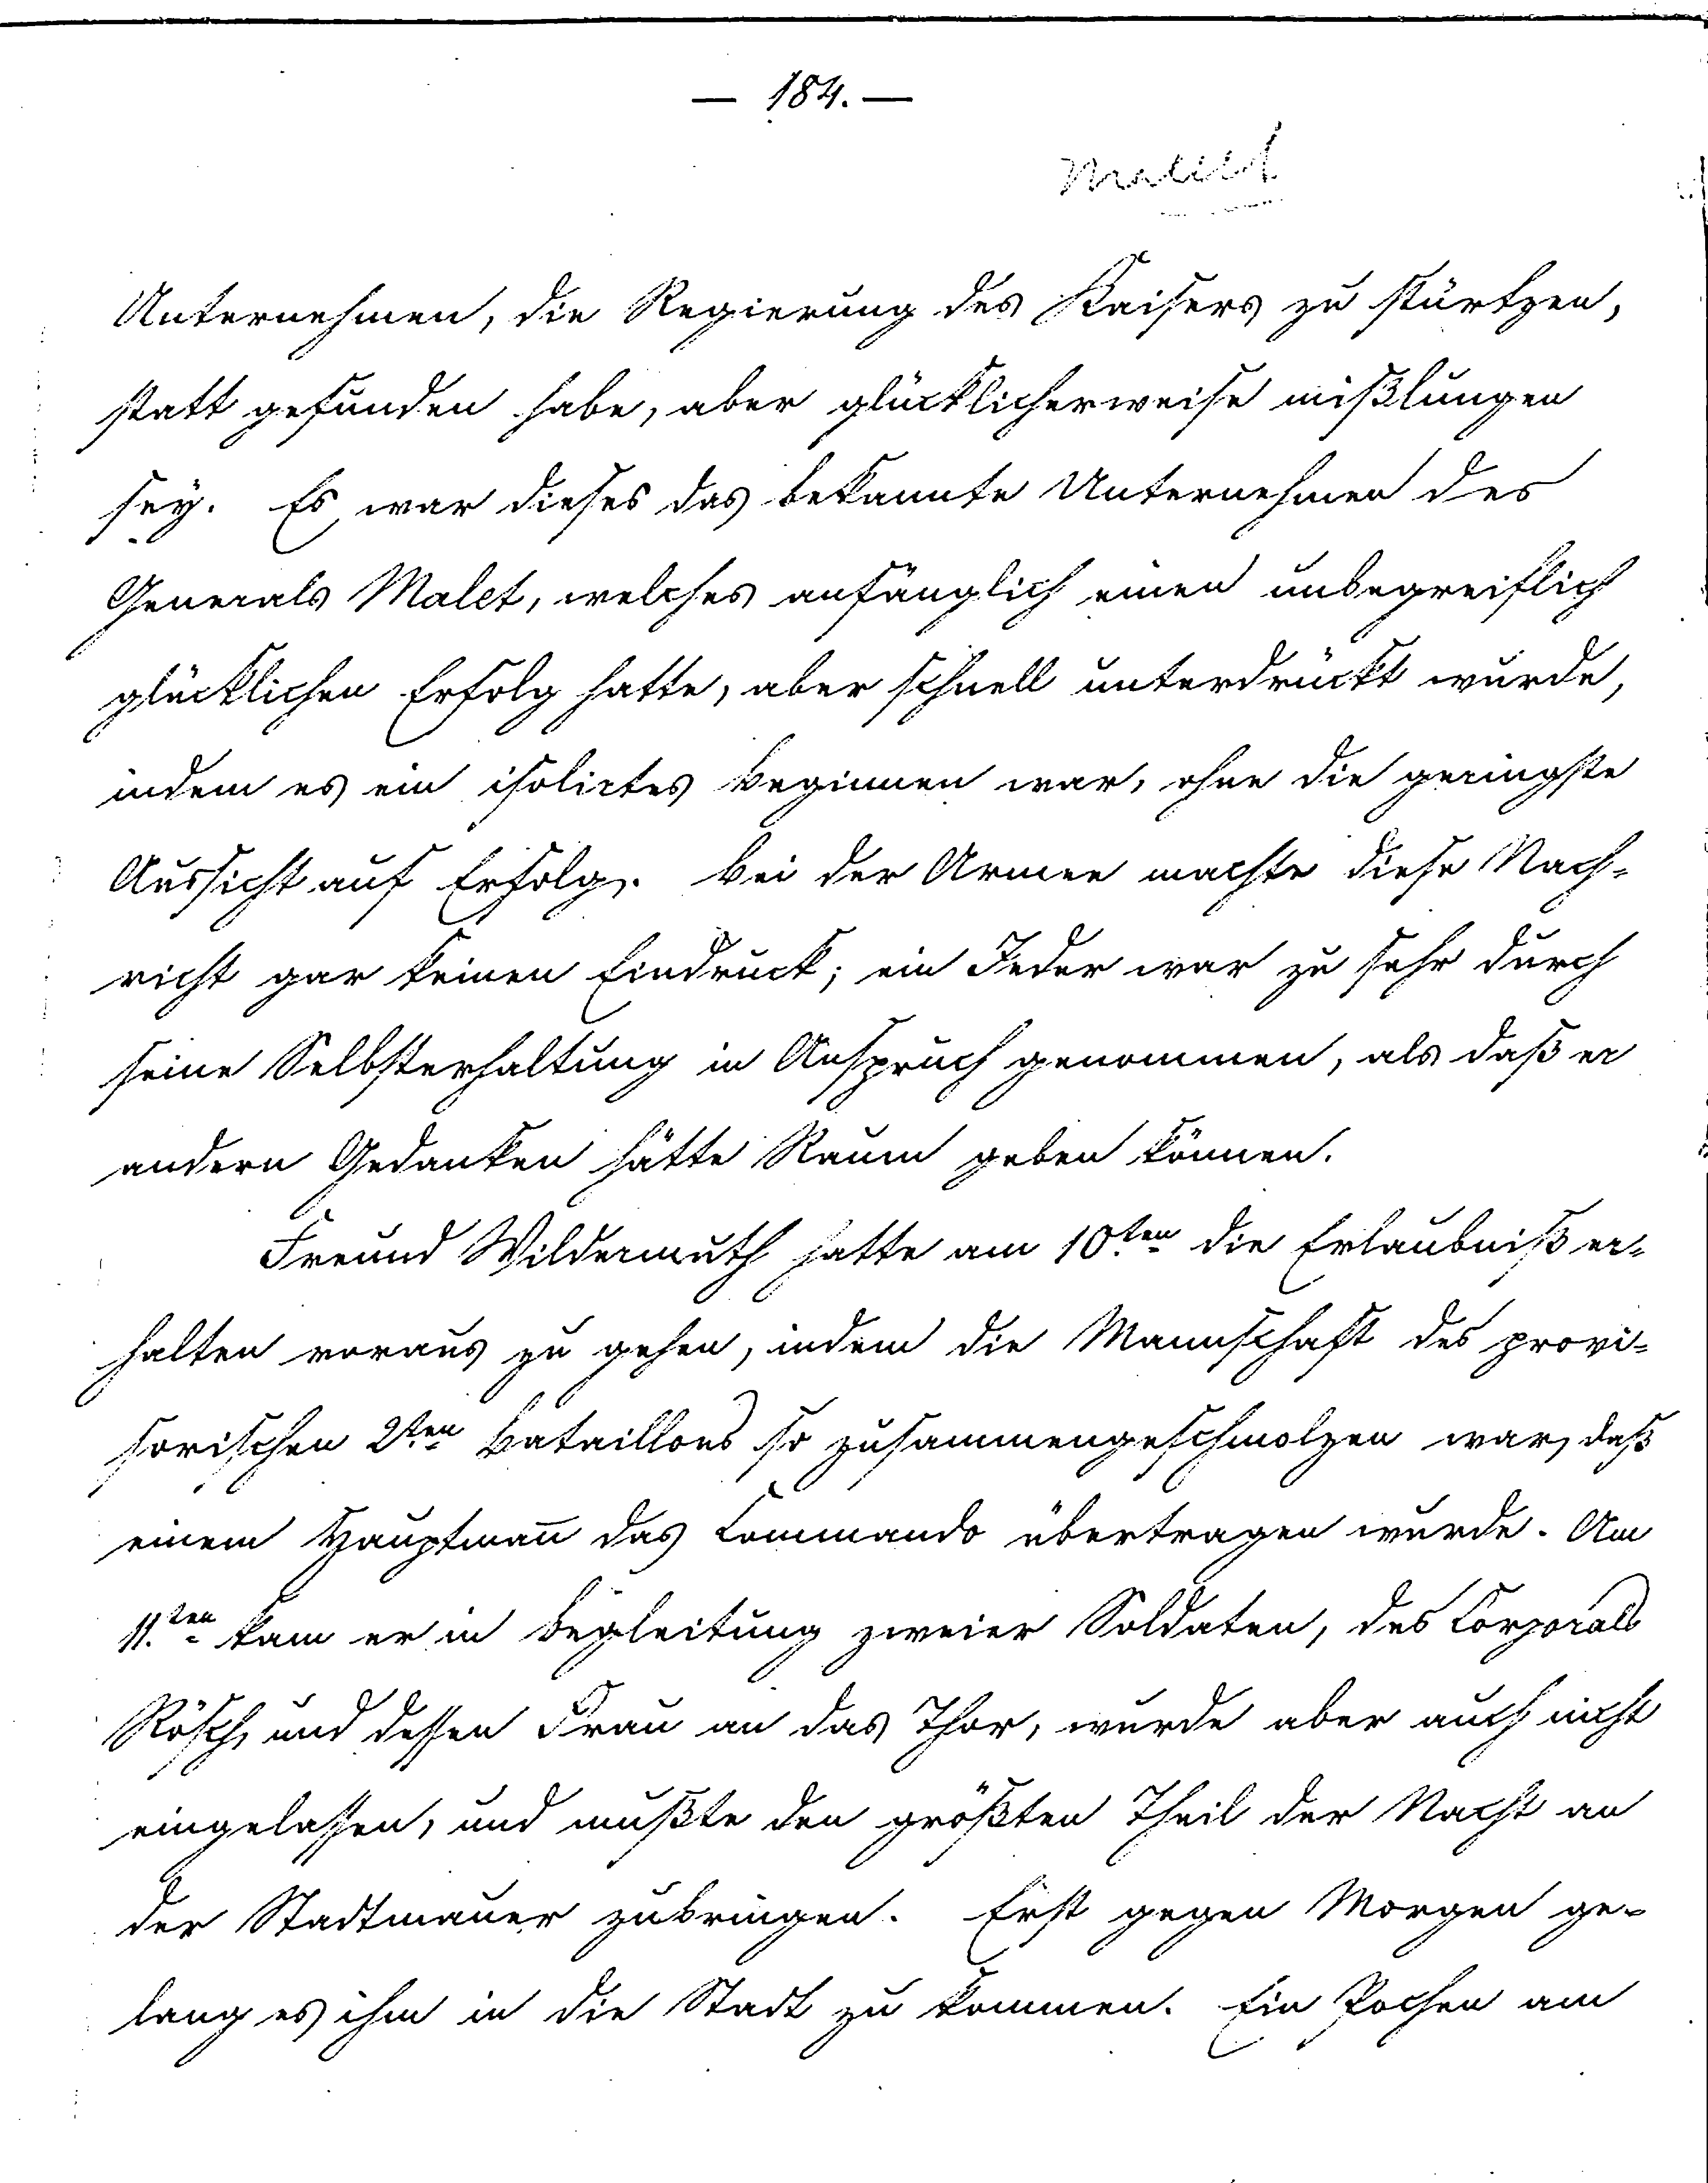 — 184. —
Unternehmen, die Regierung des Kaisers zu stürtzen,
statt gefunden habe, aber glücklicherweise mißlungen
sey. Es war dieses das bekannte Unternehmen des
Generals Malet, welches anfänglich einen unbegreiflich
glücklichen Erfolg hatte, aber schnell unterdrückt wurde,
indem es ein isolirtes Beginnen war, ohne die geringste
Aussicht auf Erfolg. Bei der Armee machte diese Nach-
richt gar keinen Eindruck; ein Jeder war zu sehr durch
seine Selbsterhaltung in Anspruch genommen, als daß er
andern Gedanken hätte Raum geben können.
Freund Wildermuth hatte am 10ten die Erlaubniß er-
halten voraus zu gehen, indem die Mannschaft des provi-
sorischen 2ten Bataillons so zusammengeschmolzen war, daß
einem Hauptmañ das Commando übertragen wurde. Am
11.ten kam er in Begleitung zweier Soldaten, des Corporals
Rösch, und dessen Frau an das Thor, wurde aber auch nicht
eingelassen, und mußte den größten Theil der Nacht an
der Stadtmauer zubringen. Erst gegen Morgen ge-
lang es ihm in die Stadt zu kommen. Ein Pochen am